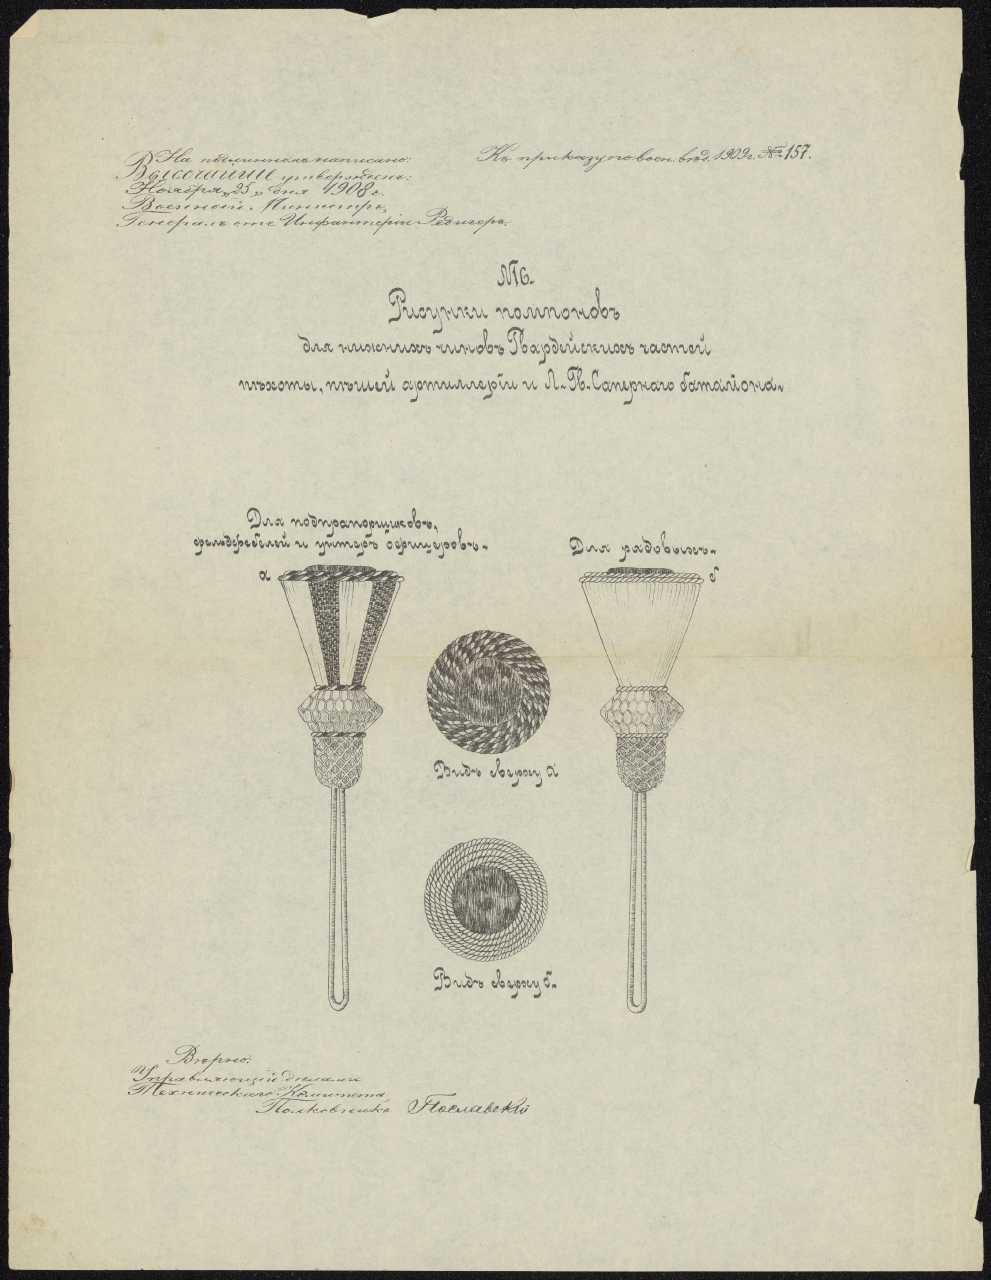 На подлинномъ написано:
ВЫСОЧАЙШЕ утверждено:
Ноября „25„ дня 1908 г.
Военный Министръ,
Генералъ отъ Инфантеріи Редигеръ.
Къ приказу по воен. вѣд. 1909 г. № 157.
№6.
Рисунки помпоновъ
для нижнихъ чиновъ Гвардейскихъ частей
пѣхоты, пѣшей артиллеріи и Л.-Гв. Сапернаго баталіона.
Для подпрапорщиковъ,
фельдфебелей и унтеръ офицеровъ.
а
Для рядовыхъ.
б
Видъ сверху а
Видъ сверху б.
Вѣрно:
Управляющій дѣлами
Техническаго Комитета,
Полковникъ Пославскій